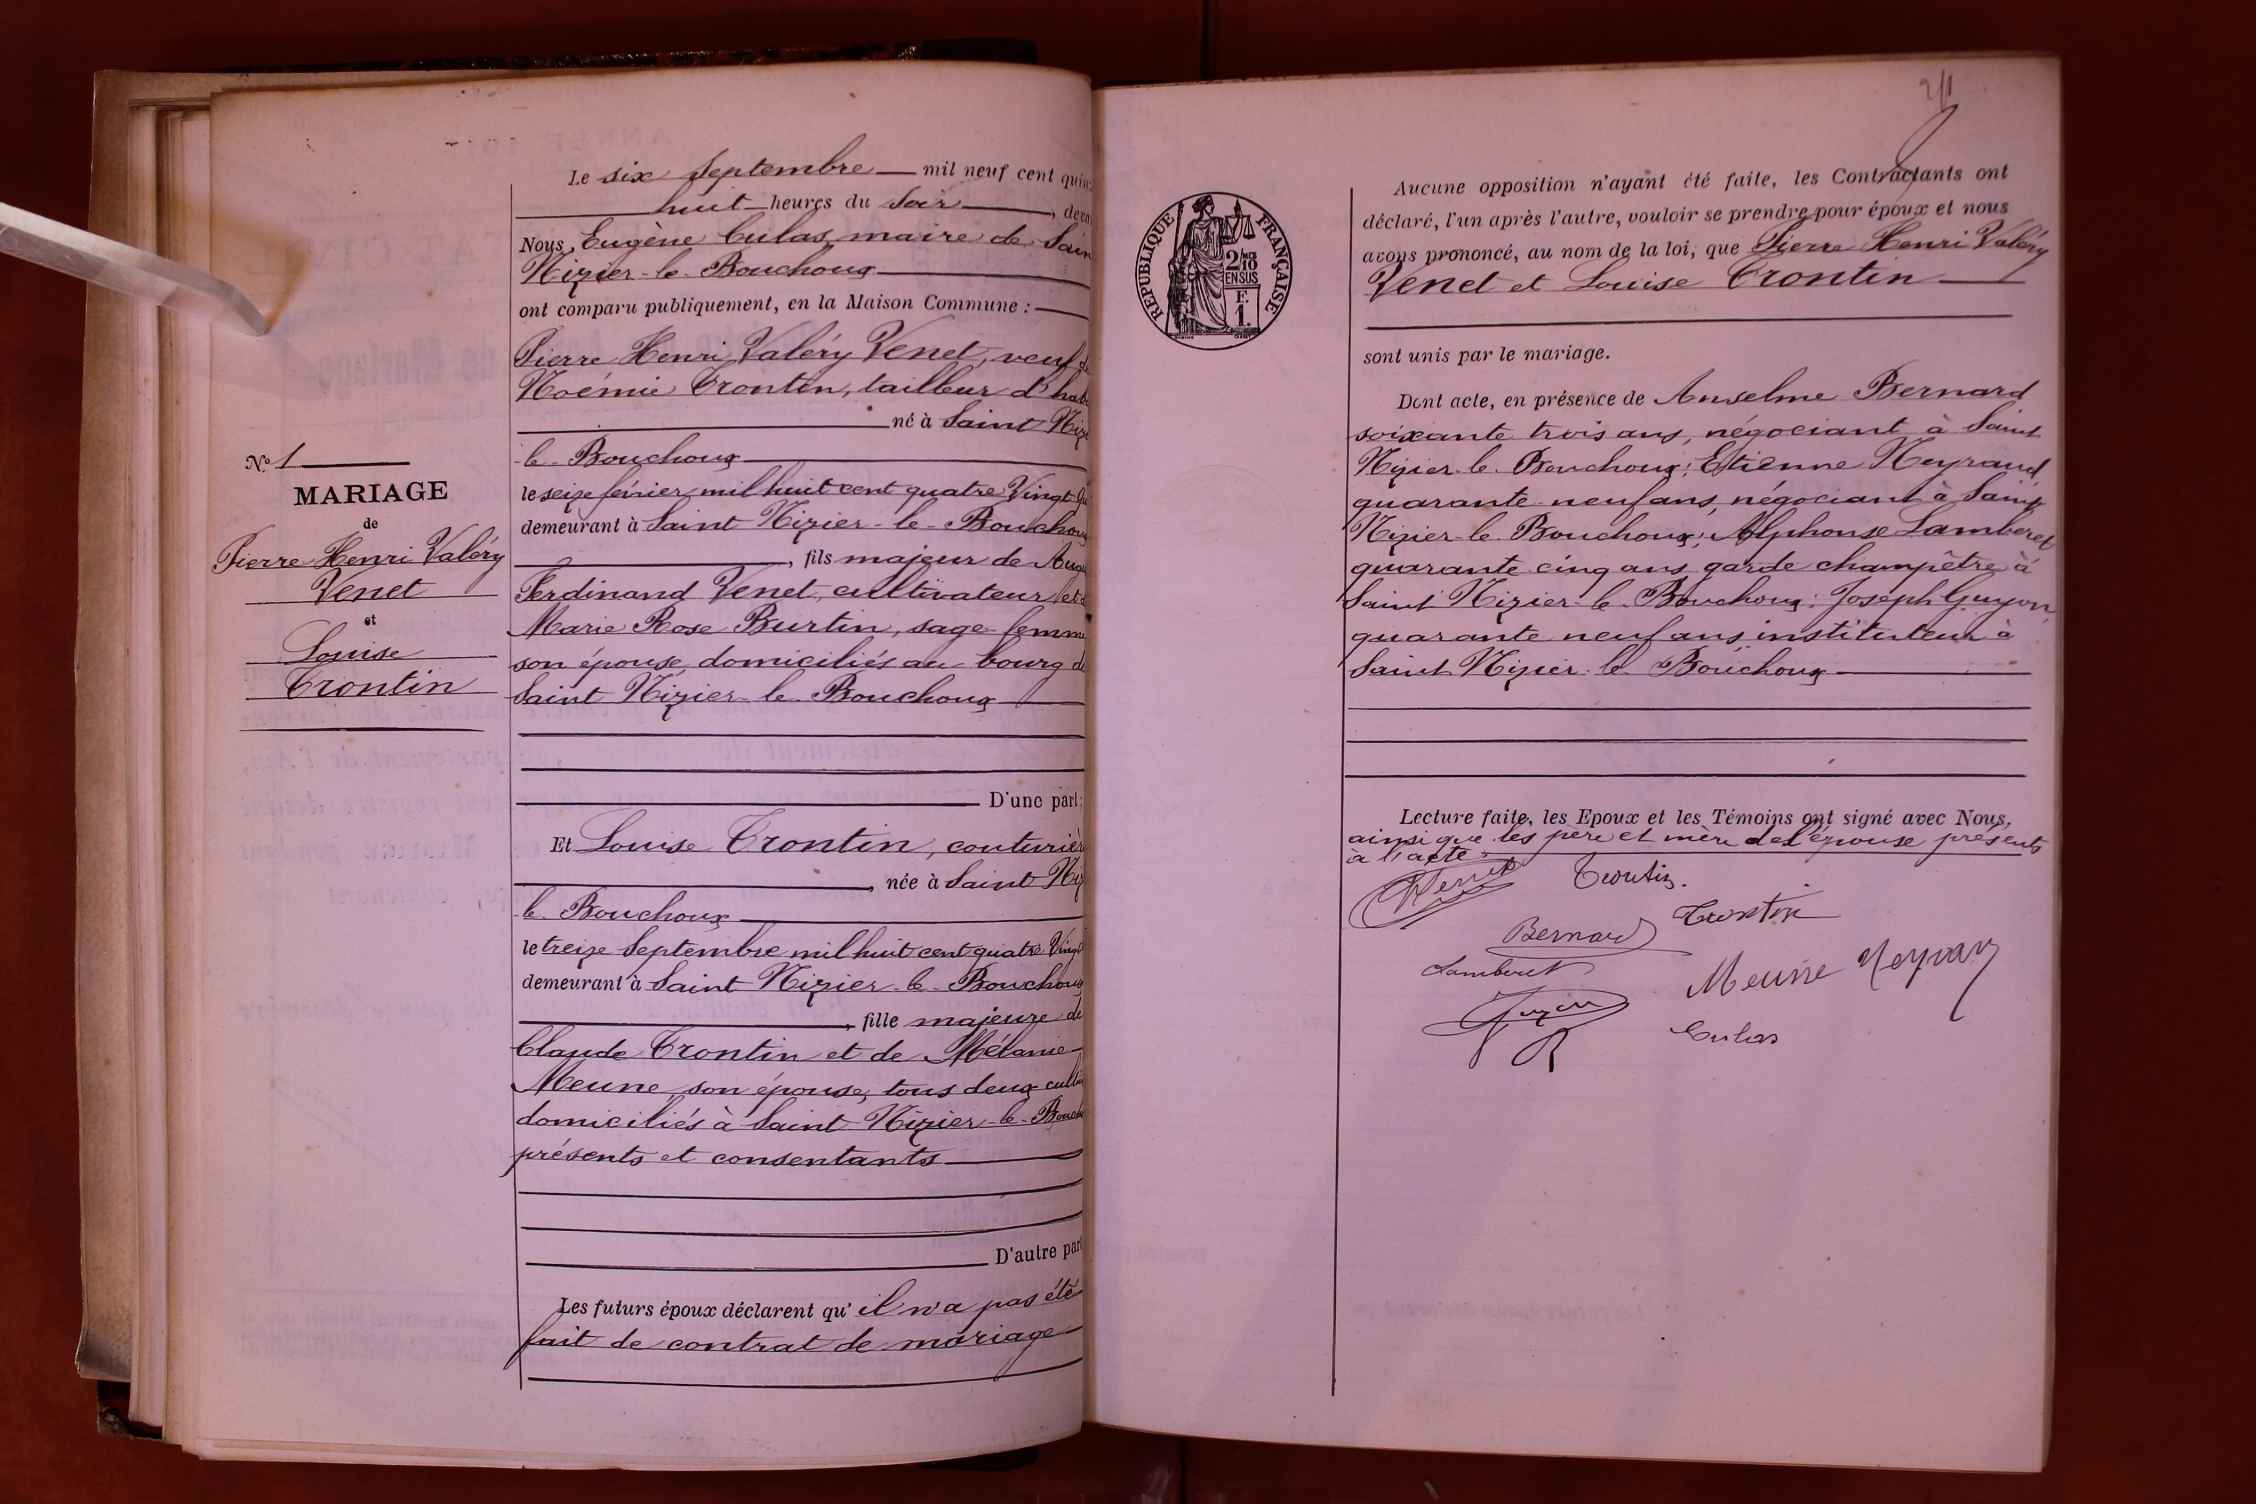 Le six Septembre mil neuf cent quin
huit heures du Soir, devan
Nous, Eugène Culas, maire de Sain
Nizier-le-Bouchoux
ont comparu publiquement, en la Maison Commune :
Pierre Henri Valéry Venet, veuf de
Noémie Trontin, tailleur d'hab
né à Saint Nizi
le-Bouchoux
le seize février mil huit cent quatre Vingt
demeurant à Saint Nizier-le-Bouchoux
, fils majeur de
Ferdinand Venet, cultivateur et
Marie Rose Burtin, sage-femme
son épouse, domiciliés au bourg de
Saint Nizier-le-Bouchoux
D'une part ;
Et Louise Trontin, couturièr
, née à Saint Niz
le-Bouchoux
le treize Septembre mil huit cent quatre Vingt
demeurant à Saint Nizier-le-Bouchoux
, fille majeure de
Claude Trontin et de Mélanie
Meune son épouse, tous deux culti
domiciliés à Saint Nizier-le-Bouch
présents et consentants
D'autre part
Les futurs époux déclarent qu'il n'a pas été
fait de contrat de mariage
No 1
MARIAGE
de
Pierre Henri Valéry
Venet
et
Louise
Trontin
2/1
REPUBLIQUE FRANÇAISE
2/10
EN SUS
F.
1.
Aucune opposition n'ayant été faite, les Contractants ont
déclaré, l'un après l'autre, vouloir se prendre pour époux et nous
avons prononcé, au nom de la loi, que Pierre Henri Valéry
Venet et Louise Trontin
sont unis par le mariage.
Dont acte, en présence de Anselme Bernard
soixante trois ans, négociant à Saint
Nizier-le-Bouchoux ; Etienne Neyraud
quarante-neuf ans, négociant à Saint
Nizier-le-Bouchoux ; Alphonse Lamberet
quarante cinq ans garde champêtre à
Saint Nizier-le-Bouchoux ; Joseph Guyon,
quarante neuf ans instituteur à
Saint Nizier-le-Bouchoux
Lecture faite, les Epoux et les Témoins ont signé avec Nous,
ainsi que les père et mère de l'épouse présents
à l'acte.
Venet Trontin.
Trontin
Bernard
Lamberet
Meune Neyraud
Guyon
Culas